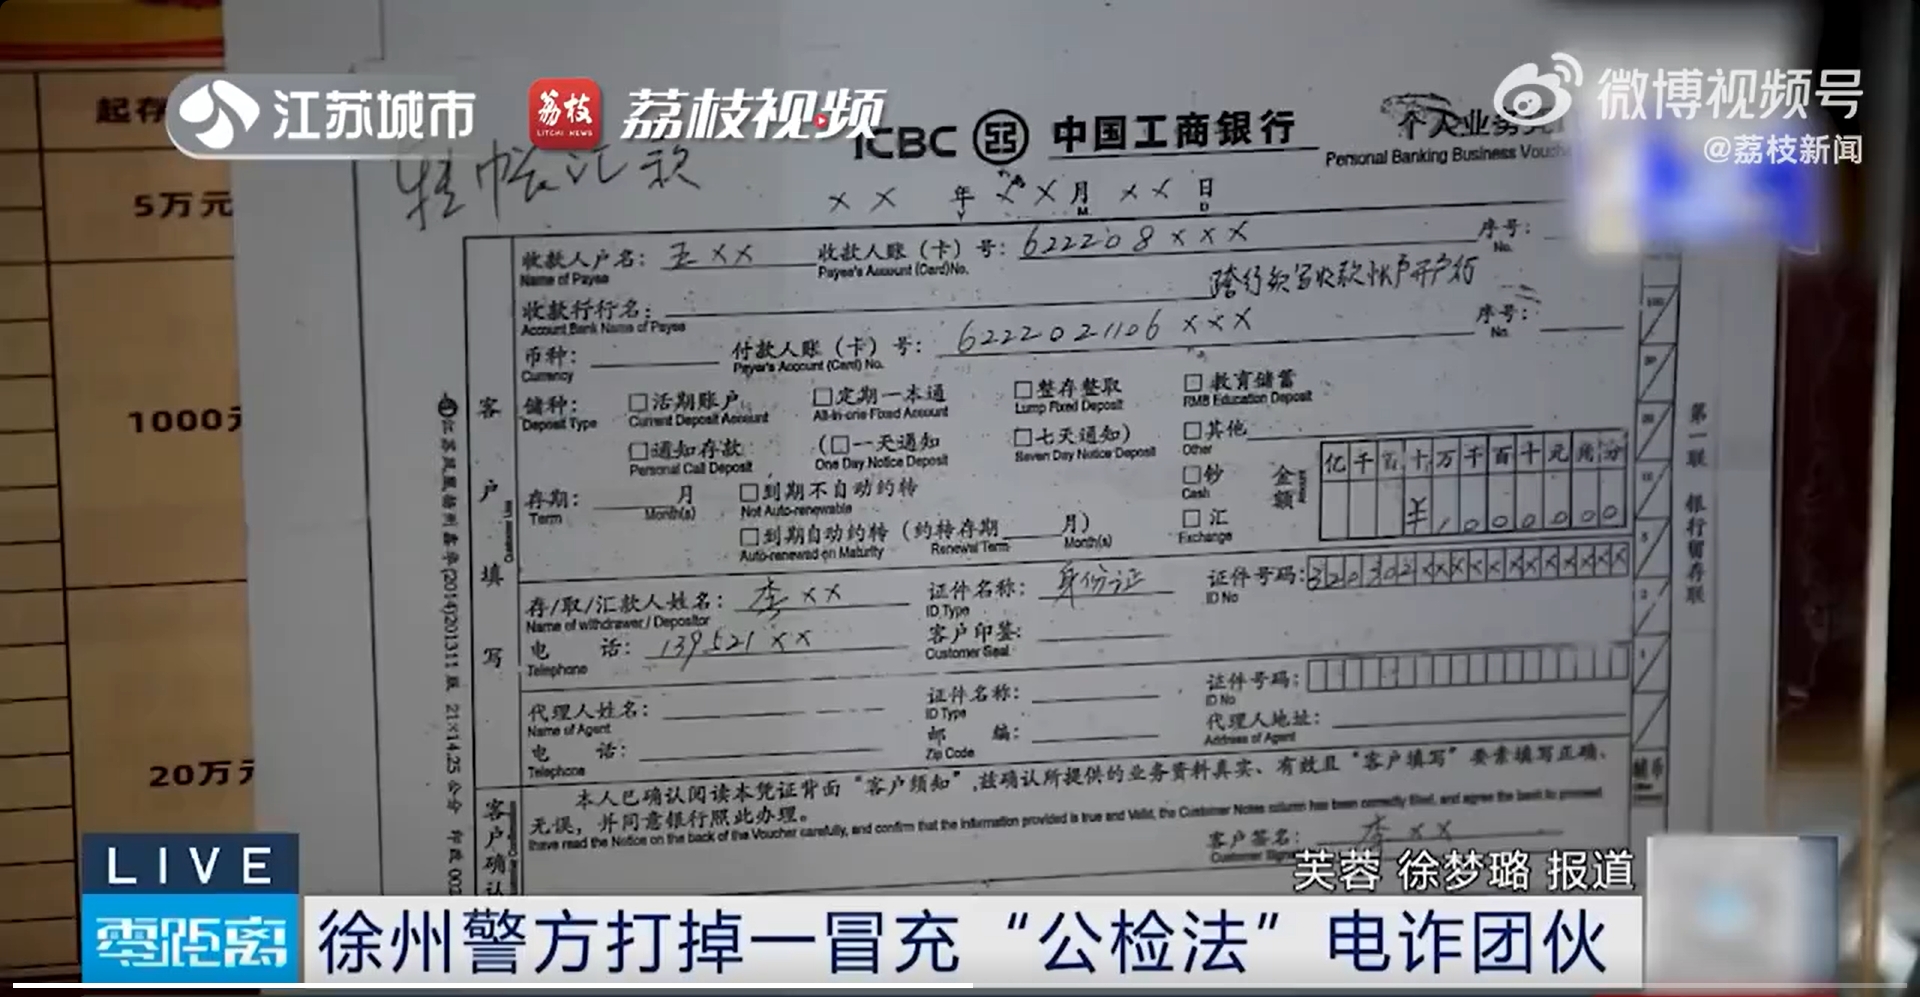 江苏城市
荔枝
LITCHI NEWS
荔枝视频
微博视频号
@荔枝新闻
起存
5万元
1000元
20万元
转帐汇款
ICBC 中国工商银行
个人业务
Personal Banking Business Vouche
XX 年 XX 月 XX 日
M D
收款人户名: 王XX 收款人账(卡)号: 622208XXX 序号:
Name of Payee Payee's Account (Card)No. No.
跨行须写收款帐户开户行
收款行行名:
Account Bank Name of Payee
币种: 付款人账(卡)号: 6222021106XXX 序号:
Currency Payer's Account (Card) No. No.
储种: □活期账户 □定期一本通 □整存整取 □教育储蓄
Deposit Type Current Deposit Account All-in-one Fixed Account Lump Fixed Deposit RMB Education Deposit
□通知存款 (□一天通知 □七天通知) □其他
Personal Call Deposit One Day Notice Deposit Seven Day Notice Deposit Other
存期: 月 □到期不自动约转 □钞 金额 亿千百十万千百十元角分
Term Month(s) Not Auto-renewable Cash Amount
□到期自动约转(约转存期 月) □汇 ¥10000000
Auto-renewed on Maturity Renewal Term Month(s) Exchange
存/取/汇款人姓名: 李XX 证件名称: 身份证 证件号码: 320302XXXXXXXXXXXX
Name of withdrawer / Depositor ID Type ID No
电话: 139521XX 客户印签:
Telephone Customer Seal
代理人姓名: 证件名称: 证件号码:
Name of Agent ID Type ID No
电话: 邮编: 代理人地址:
Telephone Zip Code Address of Agent
本人已确认阅读本凭证背面“客户须知”,兹确认所提供的业务资料真实、有效且“客户填写”要素填写正确、
无误,并同意银行照此办理。
I have read the Notice on the back of the Voucher carefully, and confirm that the information provided is true and Valid, the Customer Notes column has been correctly filled, and agree the bank to proceed
客户签名: 李XX
Customer Sign
客户填写
客户确认
第一联 银行留存联
芙蓉 徐梦璐 报道
LIVE
零距离
徐州警方打掉一冒充“公检法”电诈团伙